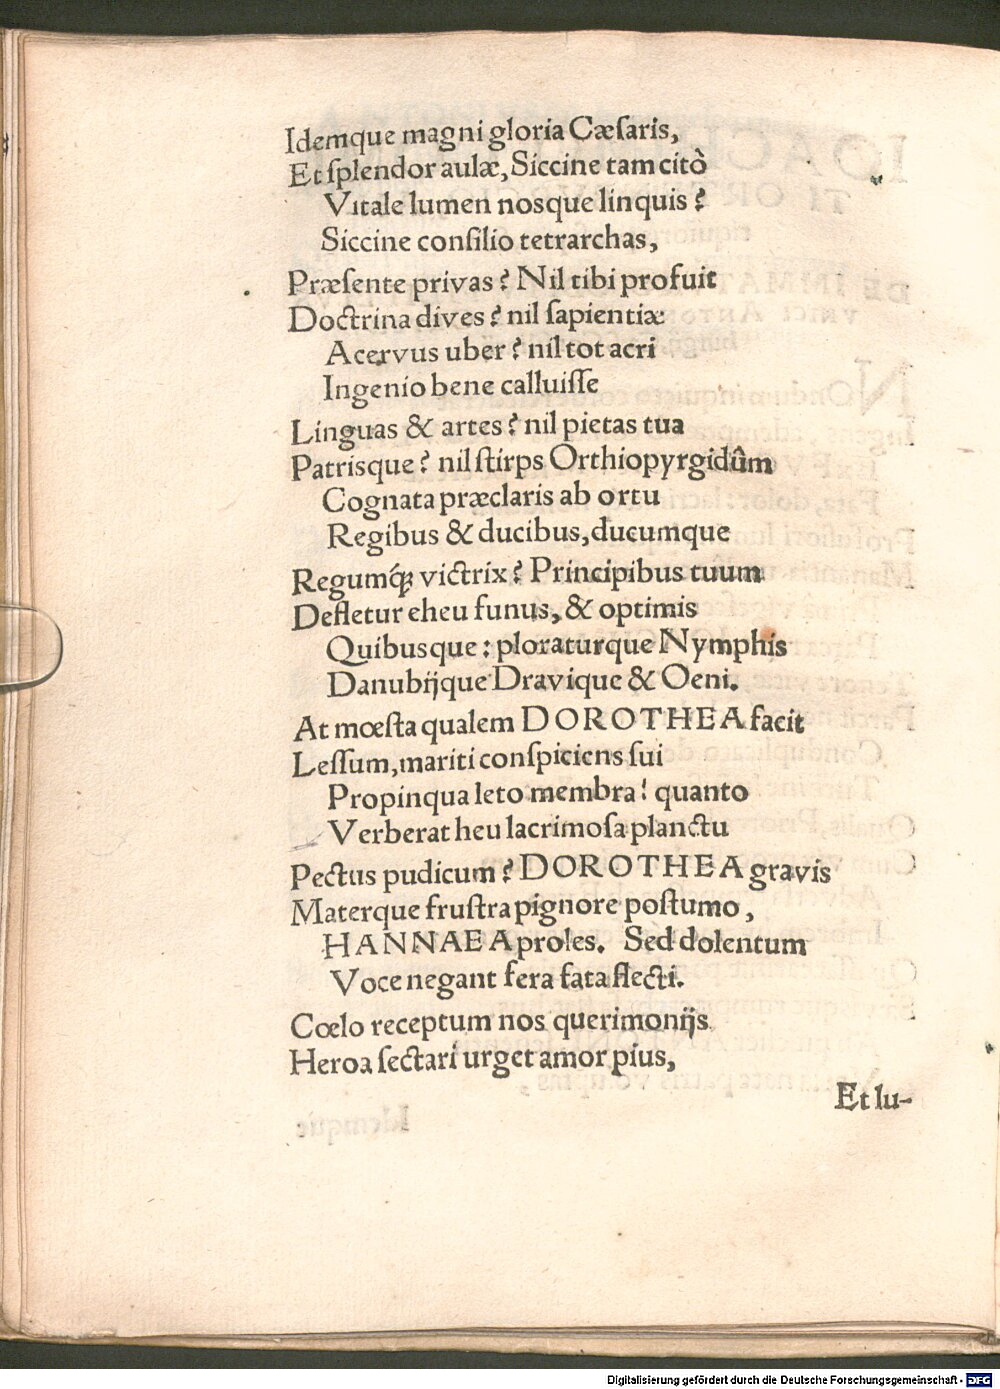 Idemque magni gloria Cæſaris,
Et ſplendor aulæ, Siccine tam citò
Vitale lumen nosque linquis?
Siccine conſilio tetrarchas,
Præſente privas? Nil tibi profuit
Doctrina dives? nil ſapientiæ
Acervus uber? nil tot acri
Ingenio bene calluiſſe
Linguas & artes? nil pietas tua
Patrisque? nil ſtirps Orthiopyrgidûm
Cognata præclaris ab ortu
Regibus & ducibus, ducumque
Regumq́ꝫ victrix? Principibus tuum
Defletur eheu funus, & optimis
Quibusque: ploraturque Nymphis
Danubijque Dravique & Oeni.
At mœſta qualem DOROTHEA facit
Leſſum, mariti conſpiciens ſui
Propinqua leto membra! quanto
Verberat heu lacrimoſa planctu
Pectus pudicum? DOROTHEA gravis
Materque fruſtra pignore poſtumo,
HANNAEA proles. Sed dolentum
Voce negant fera fata flecti.
Cœlo receptum nos querimonijs
Heroa ſectari urget amor pius,
Et lu-
Digitalisierung gefördert durch die Deutsche Forschungsgemeinschaft - DFG